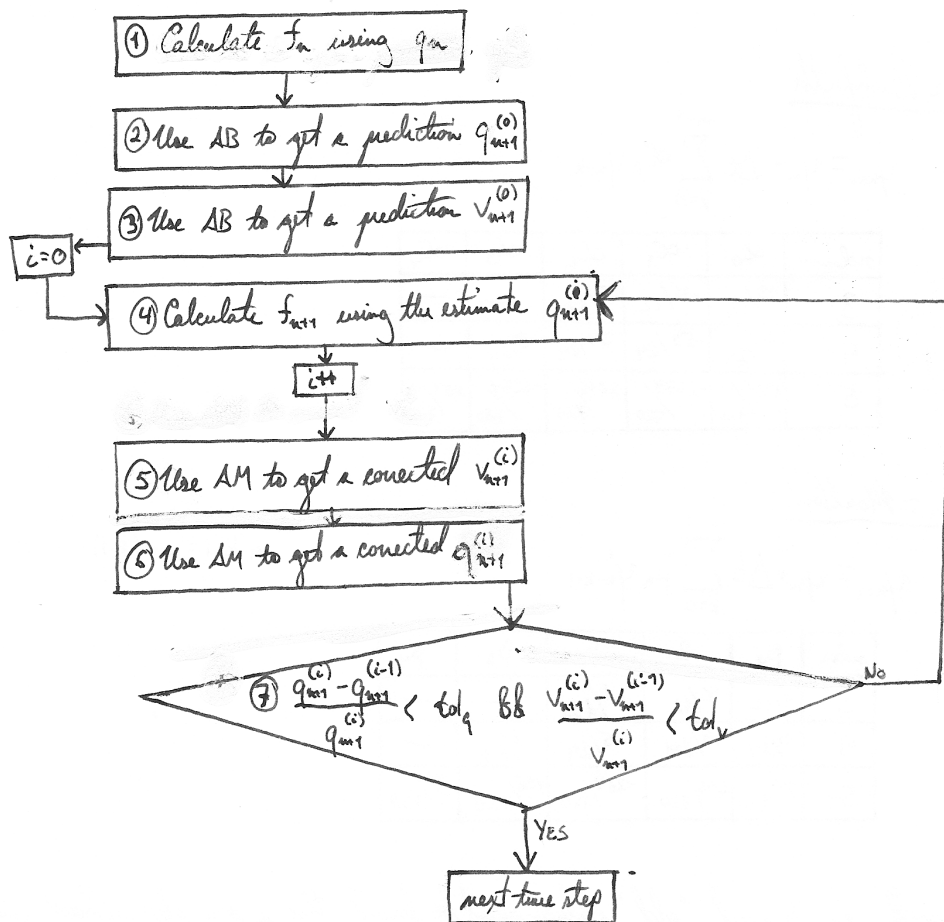 ① Calculate fₙ using qₙ
② Use AB to get a prediction qₙ₊₁⁽⁰⁾
③ Use AB to get a prediction Vₙ₊₁⁽⁰⁾
i=0
④ Calculate fₙ₊₁ using the estimate qₙ₊₁⁽ⁱ⁾
i++
⑤ Use AM to get a corrected Vₙ₊₁⁽ⁱ⁾
⑥ Use AM to get a corrected qₙ₊₁⁽ⁱ⁾
⑦ (qₙ₊₁⁽ⁱ⁾ - qₙ₊₁⁽ⁱ⁻¹⁾) / qₙ₊₁⁽ⁱ⁾ < tol_q && (Vₙ₊₁⁽ⁱ⁾ - Vₙ₊₁⁽ⁱ⁻¹⁾) / Vₙ₊₁⁽ⁱ⁾ < tol_v
No
YES
next time step